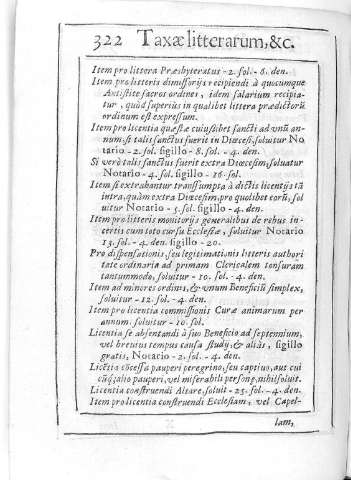 322 Taxæ litterarum, &c.
Item pro littera Præsbyteratus - 2. sol. - 8. den.
Item pro litteris dimissorijs recipiendi à quocumque
Antistite sacros ordines, idem salarium recipia-
tur, quòd superiùs in qualibet littera prædictorũ
ordinum est expressum.
Item pro licentia quæstæ cuiusibet sancti ad vnũ an-
num, si talis sanctus fuerit in Diœcesi, soluitur No
tario - 2. sol. sigillo - 8. sol. - 4. den.
Si verò talis sanctus fuerit extra Diœcesim, soluatur
Notario - 4. sol. sigillo - 16. sol.
Item si extrahantur transsumpta à dictis licentijs tã
intra, quàm extra Diœcesim, pro quolibet eorũ, sol
uitur Notario - 5. sol. sigillo - 4. den.
Item pro litteris monitorijs generalibus de rebus in-
certis cum toto cursu Ecclesiæ, soluitur Notario
13. sol. - 4. den. sigillo - 20.
Pro dispensationis, seu legitimationis litteris authori
tate ordinaria ad primam Clericalem tonsuram
tantummodo, soluitur - 10. sol. - 4. den.
Item ad minores ordines, & vnum Beneficiũ simplex,
soluitur - 12. sol. - 4. den.
Item pro licentia commissionis Curæ animarum per
annum. soluitur - 10. sol.
Licentia se absentandi à suo Beneficio ad septennium,
vel breuius tempus causa studij, & aliàs, sigillo
gratis, Notario - 2. sol. - 4. den.
Licẽtia cõcessa pauperi peregrino, seu captiuo, aut cui
cũq; alio pauperi, vel miserabili personę, nihil soluit.
Licentia construendi Altare, soluit - 25. sol. - 4. den.
Item pro licentia construendi Ecclesiam, vel Capel-
lam,